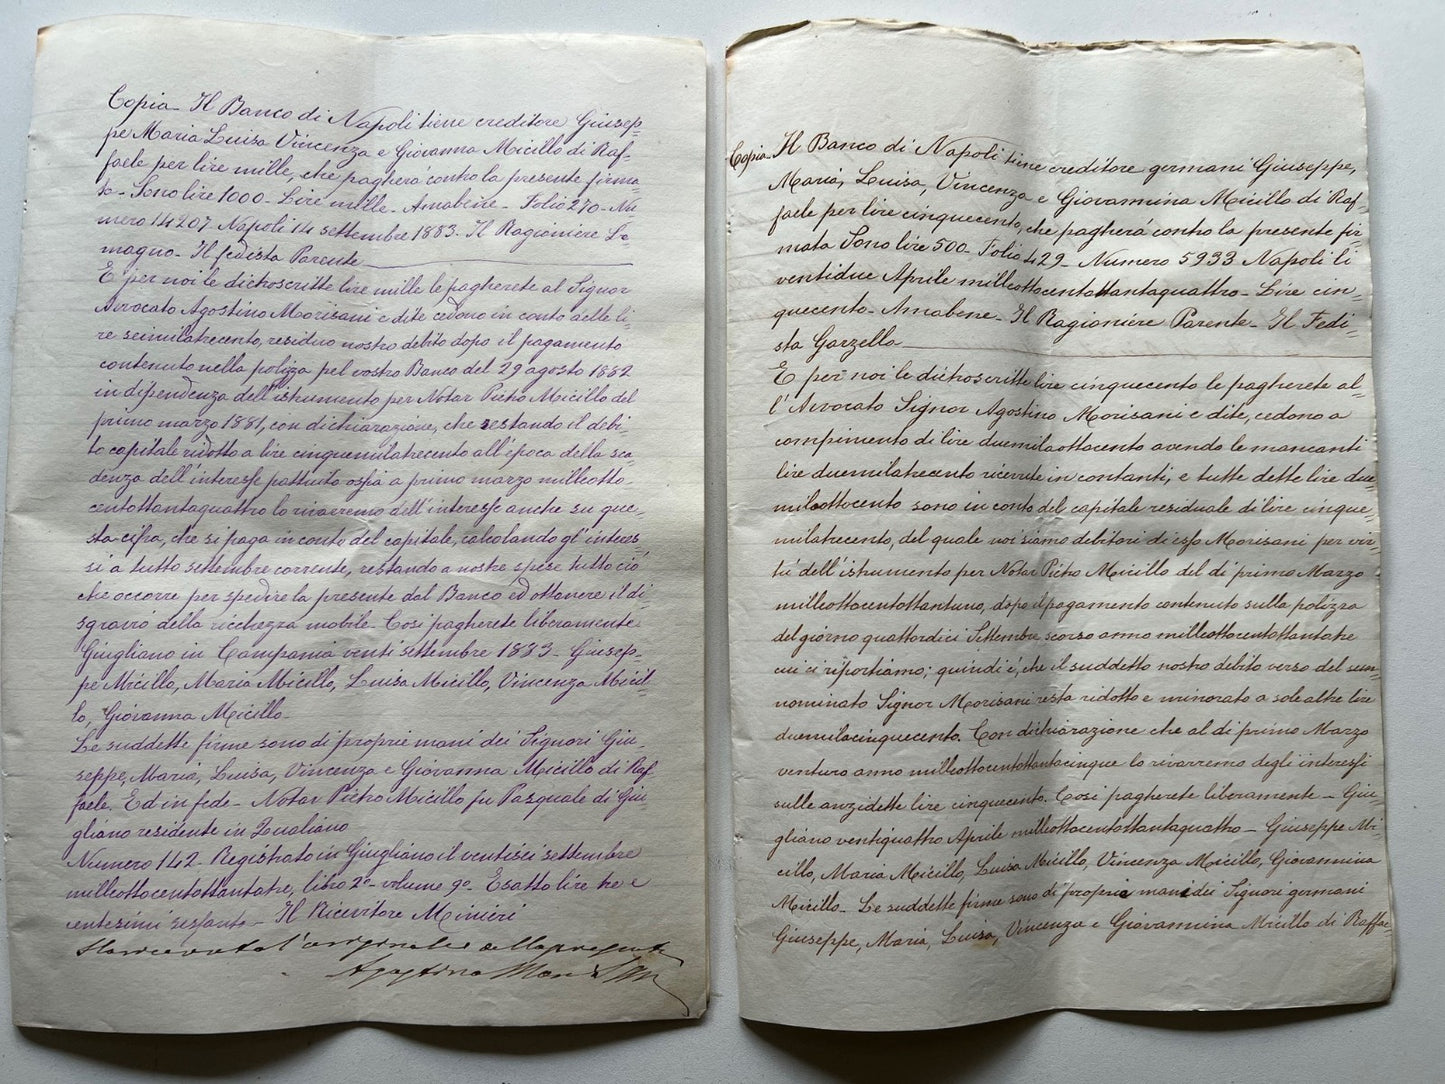 Copia_ Il Banco di Napoli tiene creditore Giusep=
pe Maria Luisa Vincenza e Giovanna Micillo di Raf=
faele per lire mille, che pagherà contro la presente firma=
ta_ Sono lire 1000_ Lire mille_ Amabene_ Folio 270_ Nu=
mero 14207 Napoli 14 settembre 1883_ Il Ragioniere Lo
magno_ Il fedista Parente
E per noi le dietroscritte lire mille le pagherete al Signor
Avvocato Agostino Morisani e dite cedono in conto delle li=
re seimilatrecento, residuo nostro debito dopo il pagamento
contenuto nella polizza pel vostro Banco del 29 agosto 1882
in dipendenza dell'istrumento per Notar Pietro Micillo del
primo marzo 1881, con dichiarazione, che restando il debi=
to capitale ridotto a lire cinquemilatrecento all'epoca della sca=
denza dell'interesse pattuito ossia a primo marzo milleotto_
centottantaquattro lo rivarremo dell'interesse anche su que=
sta cifra, che si paga in conto del capitale, calcolando gl'interes=
si a tutto settembre corrente, restando a nostre spese tutto ciò
che occorre per spedire la presente dal Banco ed ottenere il di=
sgravio della ricchezza mobile_ Così pagherete liberamente_
Giugliano in Campania venti settembre 1883_ Giusep=
pe Micillo, Maria Micillo, Luisa Micillo, Vincenza Micil=
lo, Giovanna Micillo_
Le suddette firme sono di proprie mani dei Signori Giu_
seppe, Maria, Luisa, Vincenza e Giovanna Micillo di Raf_
faele, Ed in fede_ Notar Pietro Micillo fu Pasquale di Giu
gliano residente in Qualiano
Numero 142_ Registrato in Giugliano il ventisei settembre
milleottocentottantatre, libro 2° volume 9°_ Esatto lire tre e
centesimi sessanta_ Il Ricevitore Minieri
Ho ricevuto l'originale della presente
Agostino Morisani
Copia_ Il Banco di Napoli tiene creditore germani Giuseppe,
Maria, Luisa, Vincenza e Giovannina Micillo di Raf=
faele per lire cinquecento, che pagherà contro la presente fir=
mata Sono lire 500_ Folio 429_ Numero 5933 Napoli li
ventidue Aprile milleottocentottantaquattro_ Lire cin=
quecento_ Amabene_ Il Ragioniere Parente_ Il Fedi=
sta Garzella
E per noi le dietroscritte lire cinquecento le pagherete al=
l'Avvocato Signor Agostino Morisani e dite, cedono a
compimento di lire duemilaottocento avendo le mancanti
lire duemilatrecento ricevute in contanti, e tutte dette lire due=
milaottocento sono in conto del capitale residuale di lire cinque=
milatrecento, del quale noi siamo debitori di esso Morisani per vir=
tù dell'istrumento per Notar Pietro Micillo del dì primo Marzo
milleottocentottantuno, dopo il pagamento contenuto sulla polizza
del giorno quattordici Settembre scorso anno milleottocentottantatre
cui ci riportiamo; quindi è, che il suddetto nostro debito verso del sum=
nominato Signor Morisani resta ridotto e minorato a sole altre lire
duemilacinquecento. Con dichiarazione che al dì primo Marzo
venturo anno milleottocentottantacinque lo rivarremo degli interessi
sulle anzidette lire cinquecento. Così pagherete liberamente_ Giu=
gliano ventiquattro Aprile milleottocentottantaquattro_ Giuseppe Mi=
cillo, Maria Micillo, Luisa Micillo, Vincenza Micillo, Giovannina
Micillo_ Le suddette firme sono di proprie mani dei Signori germani
Giuseppe, Maria, Luisa, Vincenza e Giovannina Micillo di Raffae